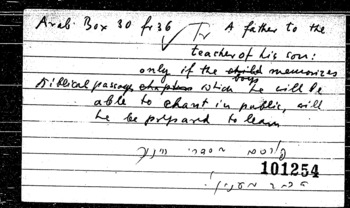 Arab. Box 30 fr 36 ✓ Tr A father to the
teacher of his son:
only if the child boy memorizes
Biblical passages chapters which he will be
able to chant in public, will
he be prepared to learn
101254